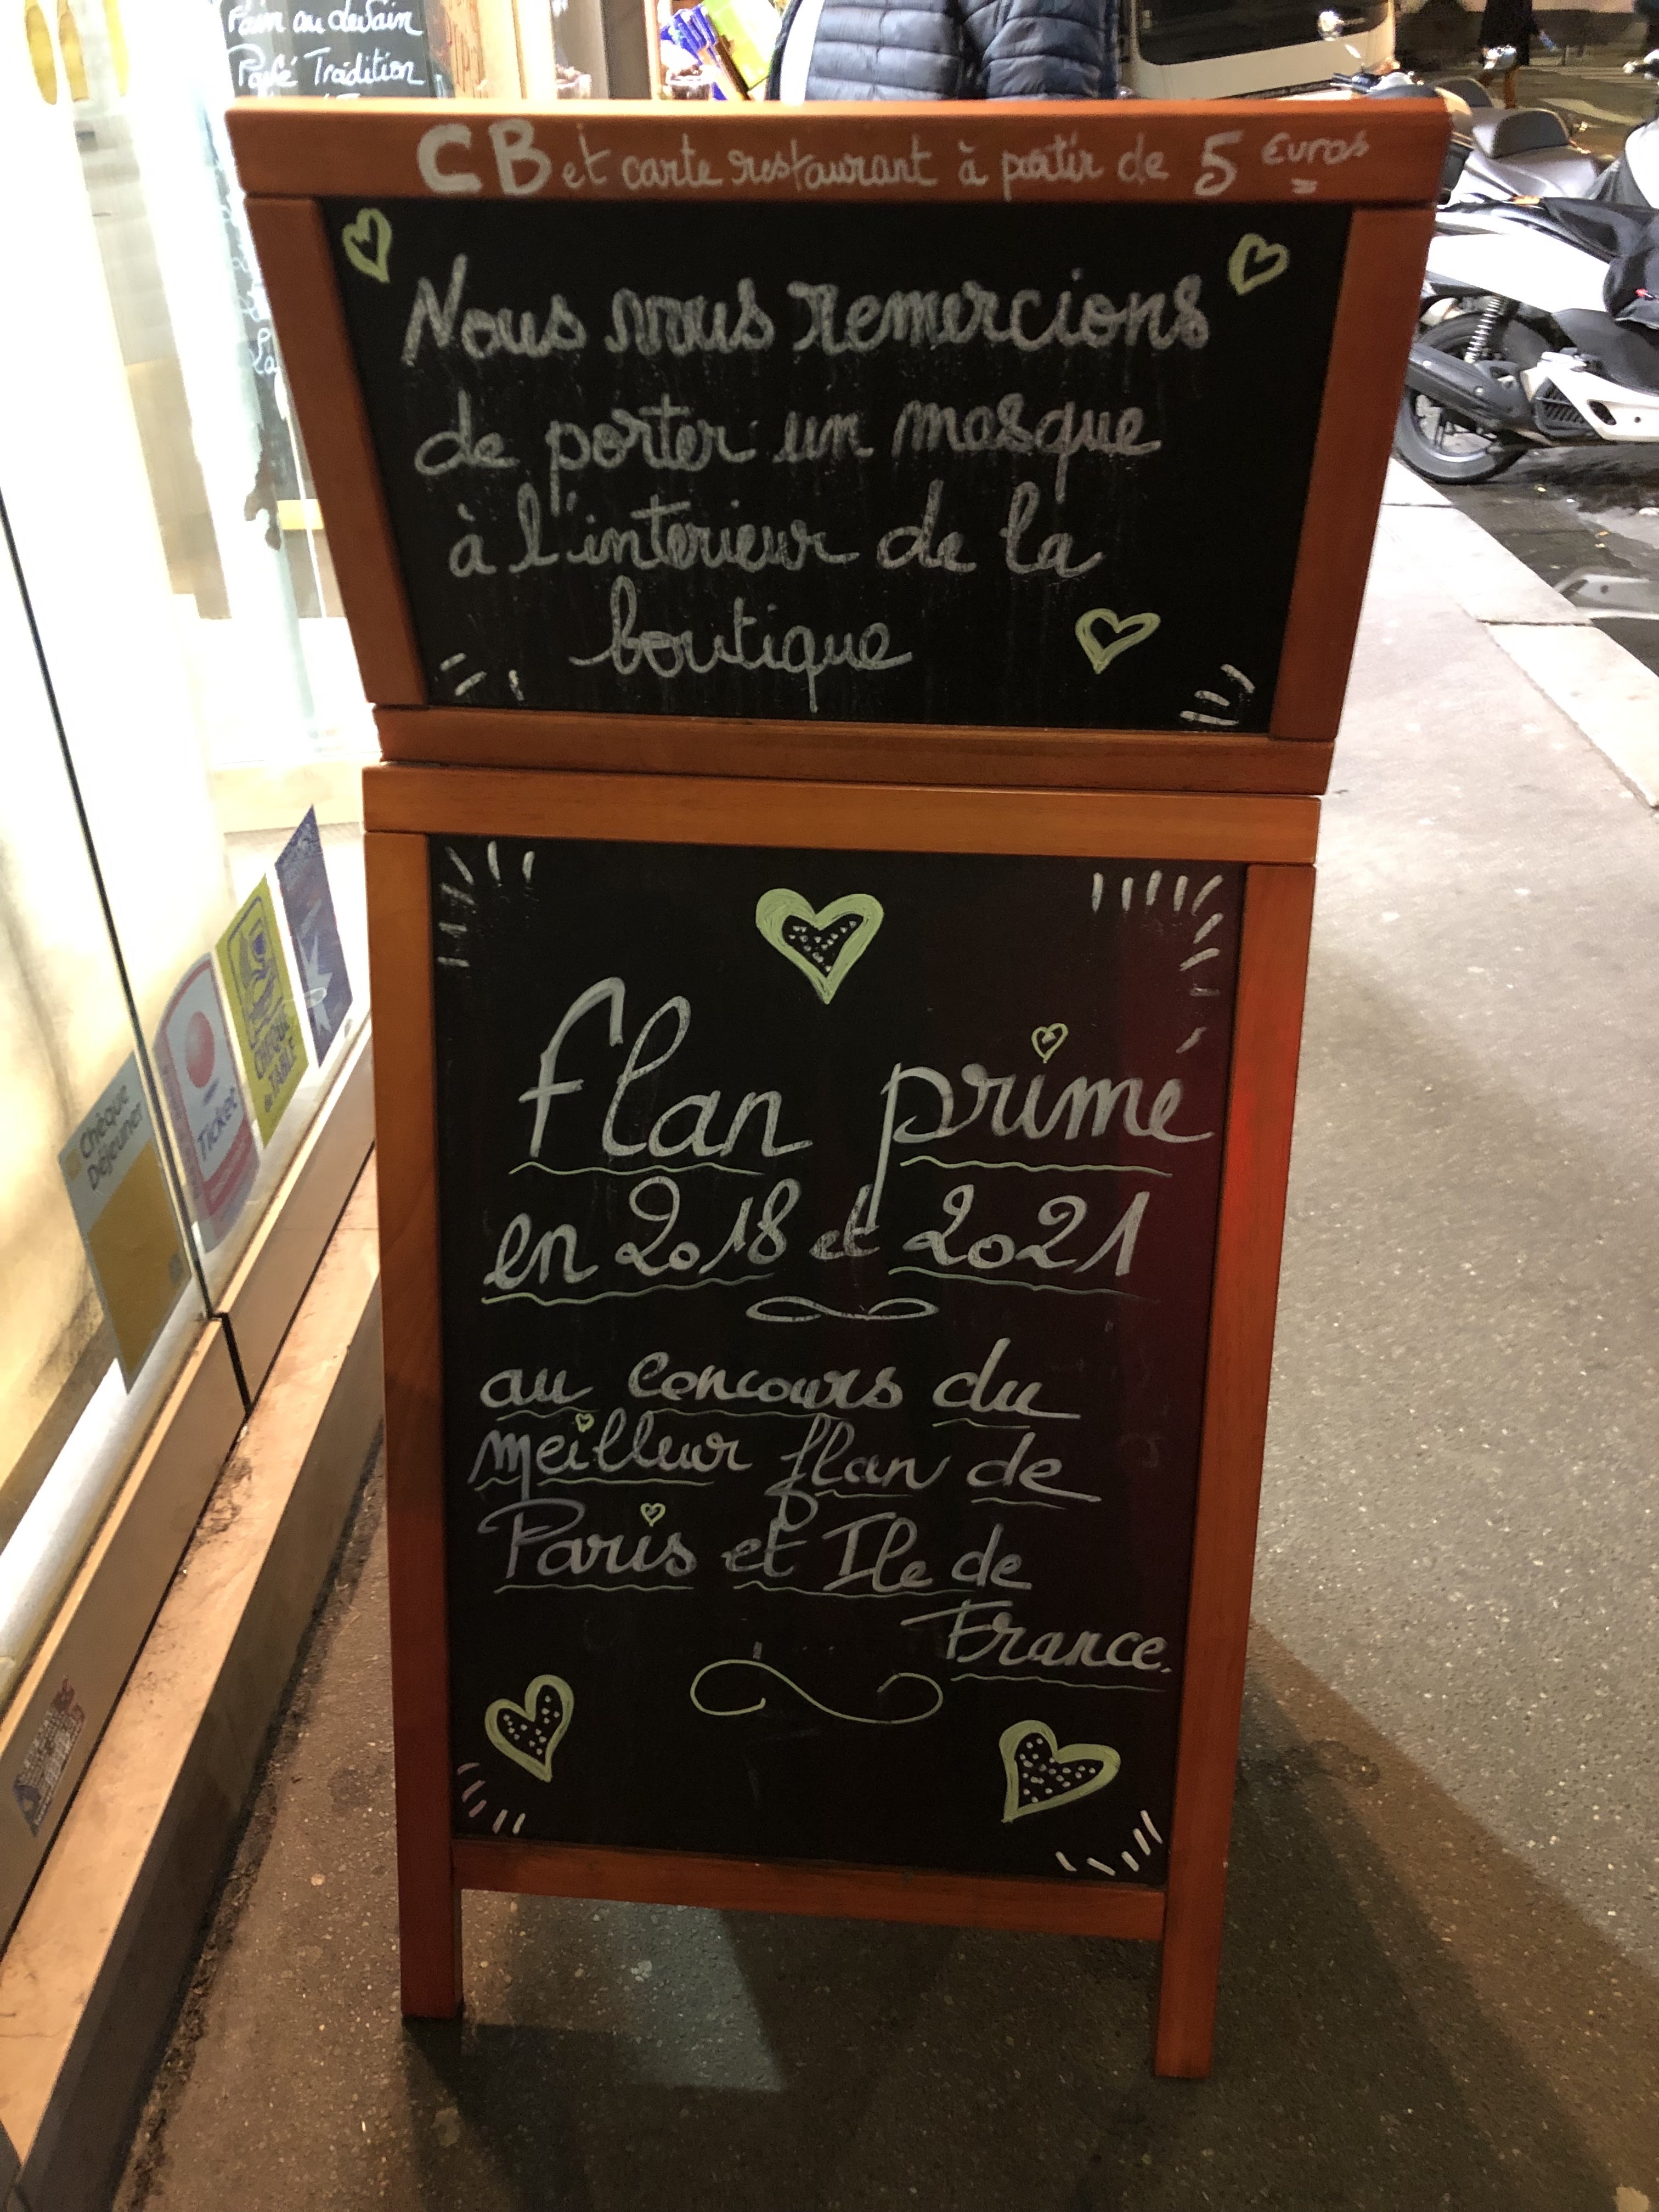 Pain au levain
Pavé Tradition
CB et carte restaurant à partir de 5 euros
Nous vous remercions
de porter un masque
à l'interieur de la
boutique
flan primé
en 2018 et 2021
au concours du
meilleur flan de
Paris et Ile de
France.
Chèque
Déjeuner
Ticket
CHÈQUE
de TABLE